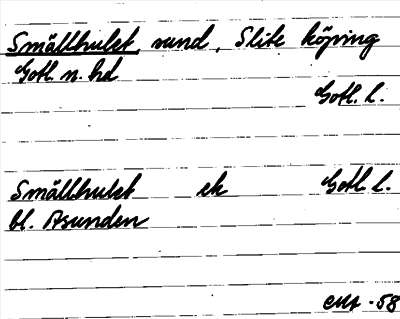 Smällhulet, sund, Slite köping
Gotl. n. hd
Gotl. l.
Smällhulet ek Gotl l.
bl. Asunden
-58